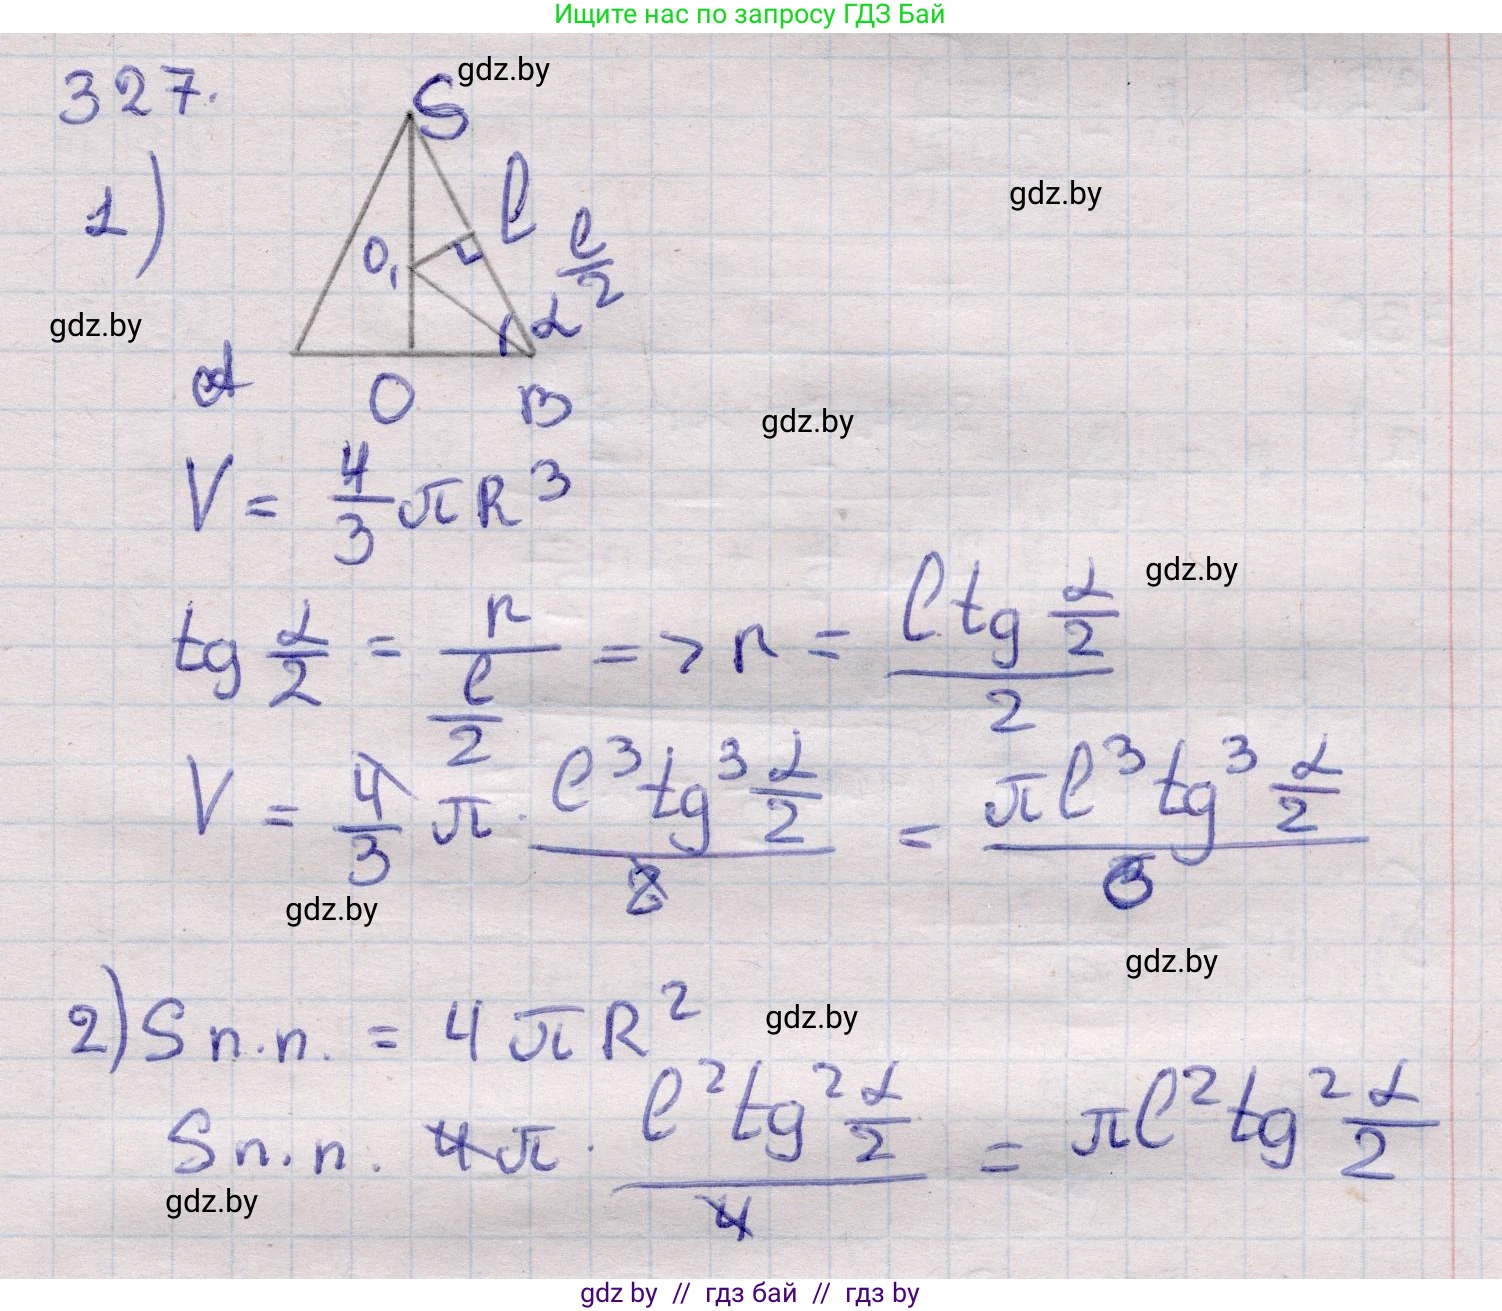 Ищите нас по запросу ГДЗ Бай
327.
gdz.by
S
1)
l
gdz.by
O₁
l/2
gdz.by
α
A
O
B
gdz.by
V = 4/3 πR³
gdz.by
tg α/2 = r/(l/2) => r = (l tg α/2)/2
V = 4/3 π · (l³ tg³ α/2)/8 = (πl³ tg³ α/2)/6
gdz.by
gdz.by
2) Sп.п. = 4πR²
gdz.by
Sп.п. 4π · (l² tg² α/2)/4 = πl² tg² α/2
gdz.by
gdz by // гдз бай // гдз by